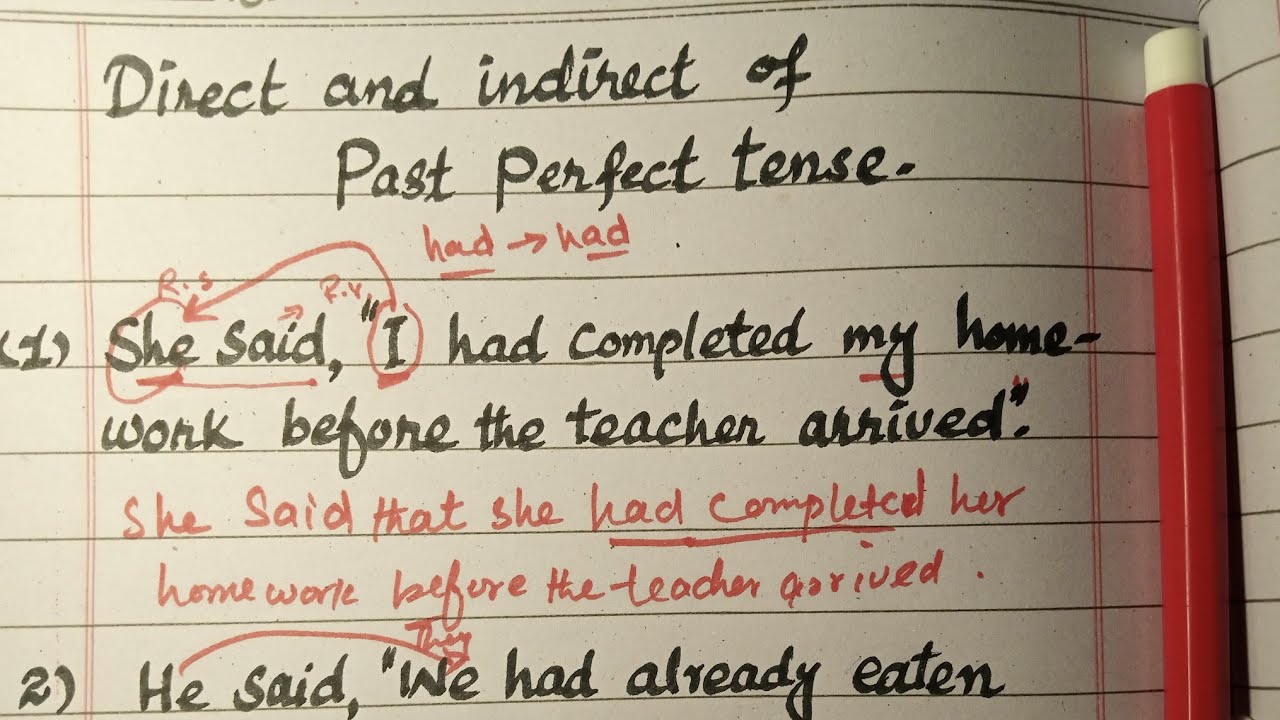 Direct and indirect of
Past Perfect tense.
had → had
R.S R.V
(1) She said, "I had completed my home-
work before the teacher arrived".
She said that she had completed her
homework before the teacher arrived.
They
2) He said, "We had already eaten